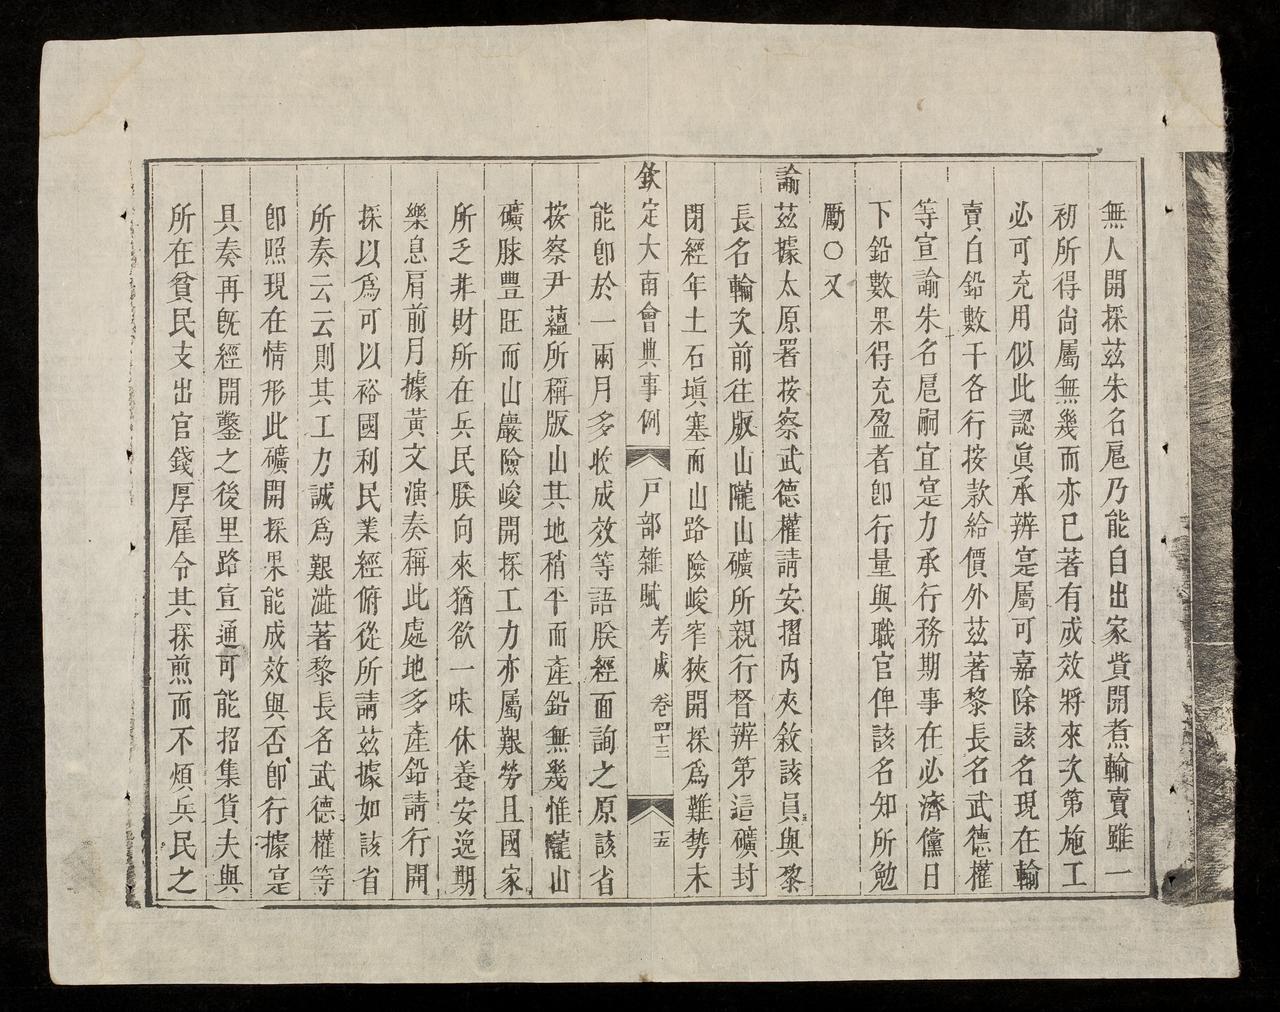 無人開採茲朱名扈乃能自出家貲開煮輸賣雖一
初所得尚屬無幾而亦已著有成效將來次第施工
必可充用似此認眞承辨寔屬可嘉除該名現在輸
賣白鉛數干各行按款給價外茲著黎長名武德權
等宣諭朱名扈嗣宜寔力承行務期事在必濟儻日
下鉛數果得充盈者卽行量與職官俾該名知所勉
勵○又
諭茲據太原署按察武德權請安摺內夾敘該員與黎
長名輪次前往版山隴山礦所親行督辨第這礦封
閉經年土石塡塞而山路險峻窄狹開採爲難勢未
欽定大南會典事例 戸部雜賦 考成 卷四十三 十五
能卽於一兩月多收成效等語朕經面詢之原該省
按察尹蘊所稱版山其地稍平而產鉛無幾惟隴山
礦脉豊旺而山巖險峻開採工力亦屬艱勞且國家
所乏非財所在兵民朕向來猶欲一味休養安逸期
樂息肩前月據黃文演奏稱此處地多產鉛請行開
採以爲可以裕國利民業經俯從所請茲據如該省
所奏云云則其工力誠爲艱澁著黎長名武德權等
卽照現在情形此礦開採果能成效與否卽行據寔
具奏再旣經開鑿之後里路宣通可能招集貨夫與
所在貧民支出官錢厚雇令其採煎而不煩兵民之